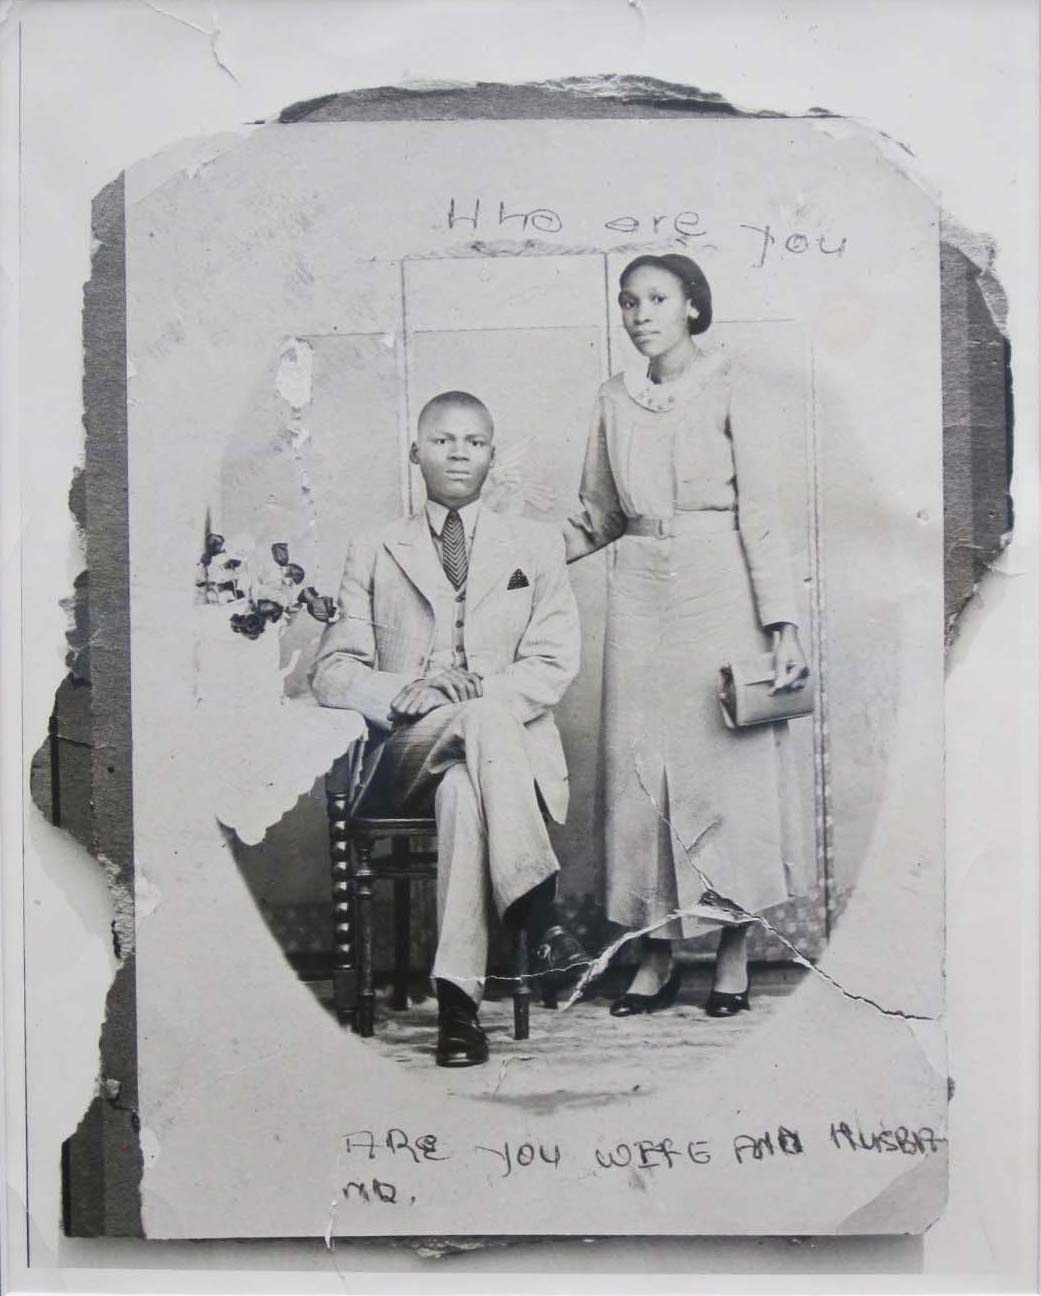 Who are you
ARE YOU WIFE AND HUSBA
ND.